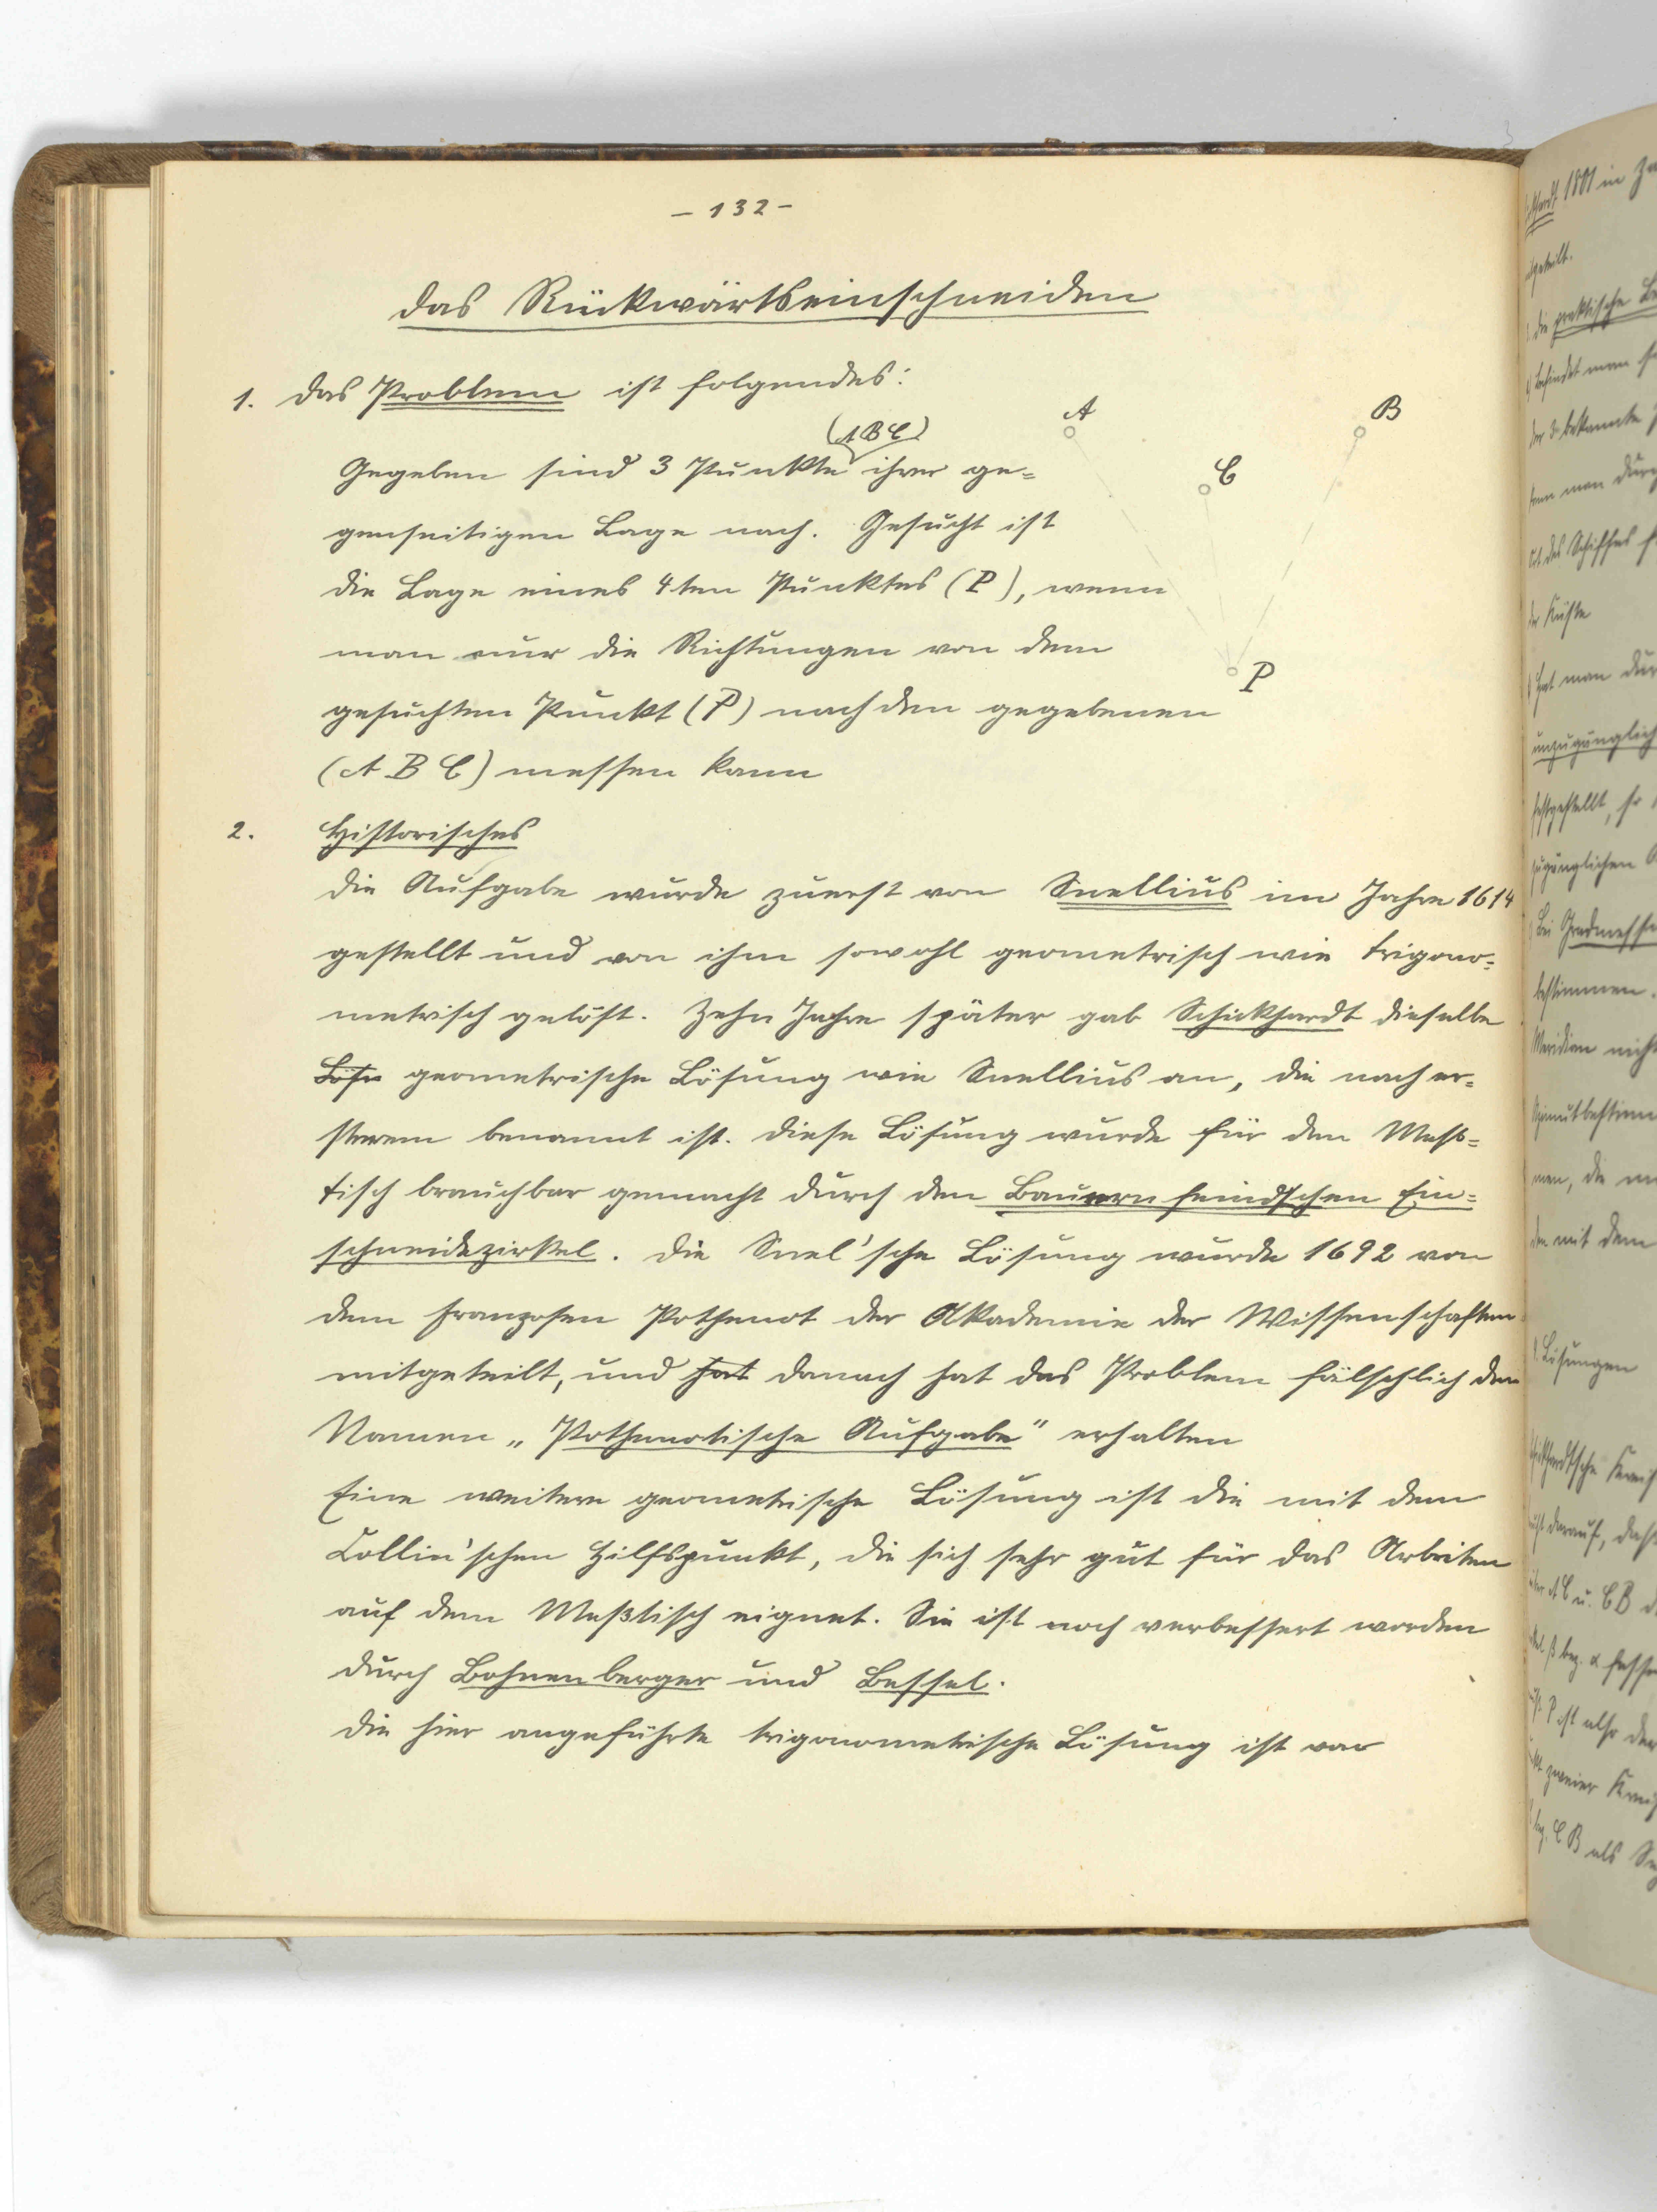 - 132 -
Das Rückwärtseinschneiden
1. Das Problem ist folgendes:
(A B C)
Gegeben sind 3 Punkte ihrer ge=
genseitigen Lage nach. Gesucht ist
die Lage eines 4ten Punktes (P), wenn
man nur die Richtungen von dem
gesuchten Punkt (P) nach den gegebenen
(A B C) messen kann
A
B
C
P
2. Historisches
Die Aufgabe wurde zuerst von Snellius im Jahre 1614
gestellt und von ihm sowohl geometrisch wie trigono=
metrisch gelöst. Zehn Jahre später gab Schickhardt dieselbe
Löse geometrische Lösung wie Snellius an, die nach er=
sterem benannt ist. Diese Lösung wurde für den Mess=
tisch brauchbar gemacht durch den Bauernfeindschen Ein=
schneidezirkel. Die Snel'sche Lösung wurde 1692 von
dem Franzosen Pothenot der Akademie der Wissenschaften
mitgeteilt, und hat danach hat das Problem fälschlich den
Namen „Pothenotische Aufgabe" erhalten
Eine weitere geometrische Lösung ist die mit dem
Collin'schen Hilfspunkt, die sich sehr gut für das Arbeiten
auf dem Meßtisch eignet. Sie ist noch verbessert worden
durch Bohnenberger und Bessel.
Die hier angeführte trigonometrische Lösung ist von
1801 in
die praktische
befindet man
der 3 bekannte
man
des Schiffes
der Küste
man
unzugänglich
festgestellt, so
zugänglichen
Bei Gradmess
bestimmen.
Meridian nicht
men, die
mit dem
Lösungen
darauf, dass
C u. C B
ß bez. α
P ist also der
zweier Kreis
C B als